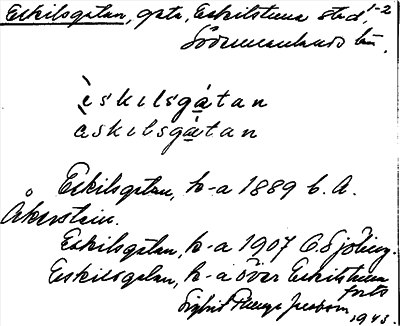 Eskilsgatan, gata, Eskilstuna stad, 1-2
Södermanlands län.
èskilsgátan
èskilsgátan
Eskilsgatan, k-a 1889 C. A.
Åkerstein.
Eskilsgatan, k-a 1907 C. Sjöberg.
Eskilsgatan, k-a över Eskilstuna
forts
Sigfrid
1943.